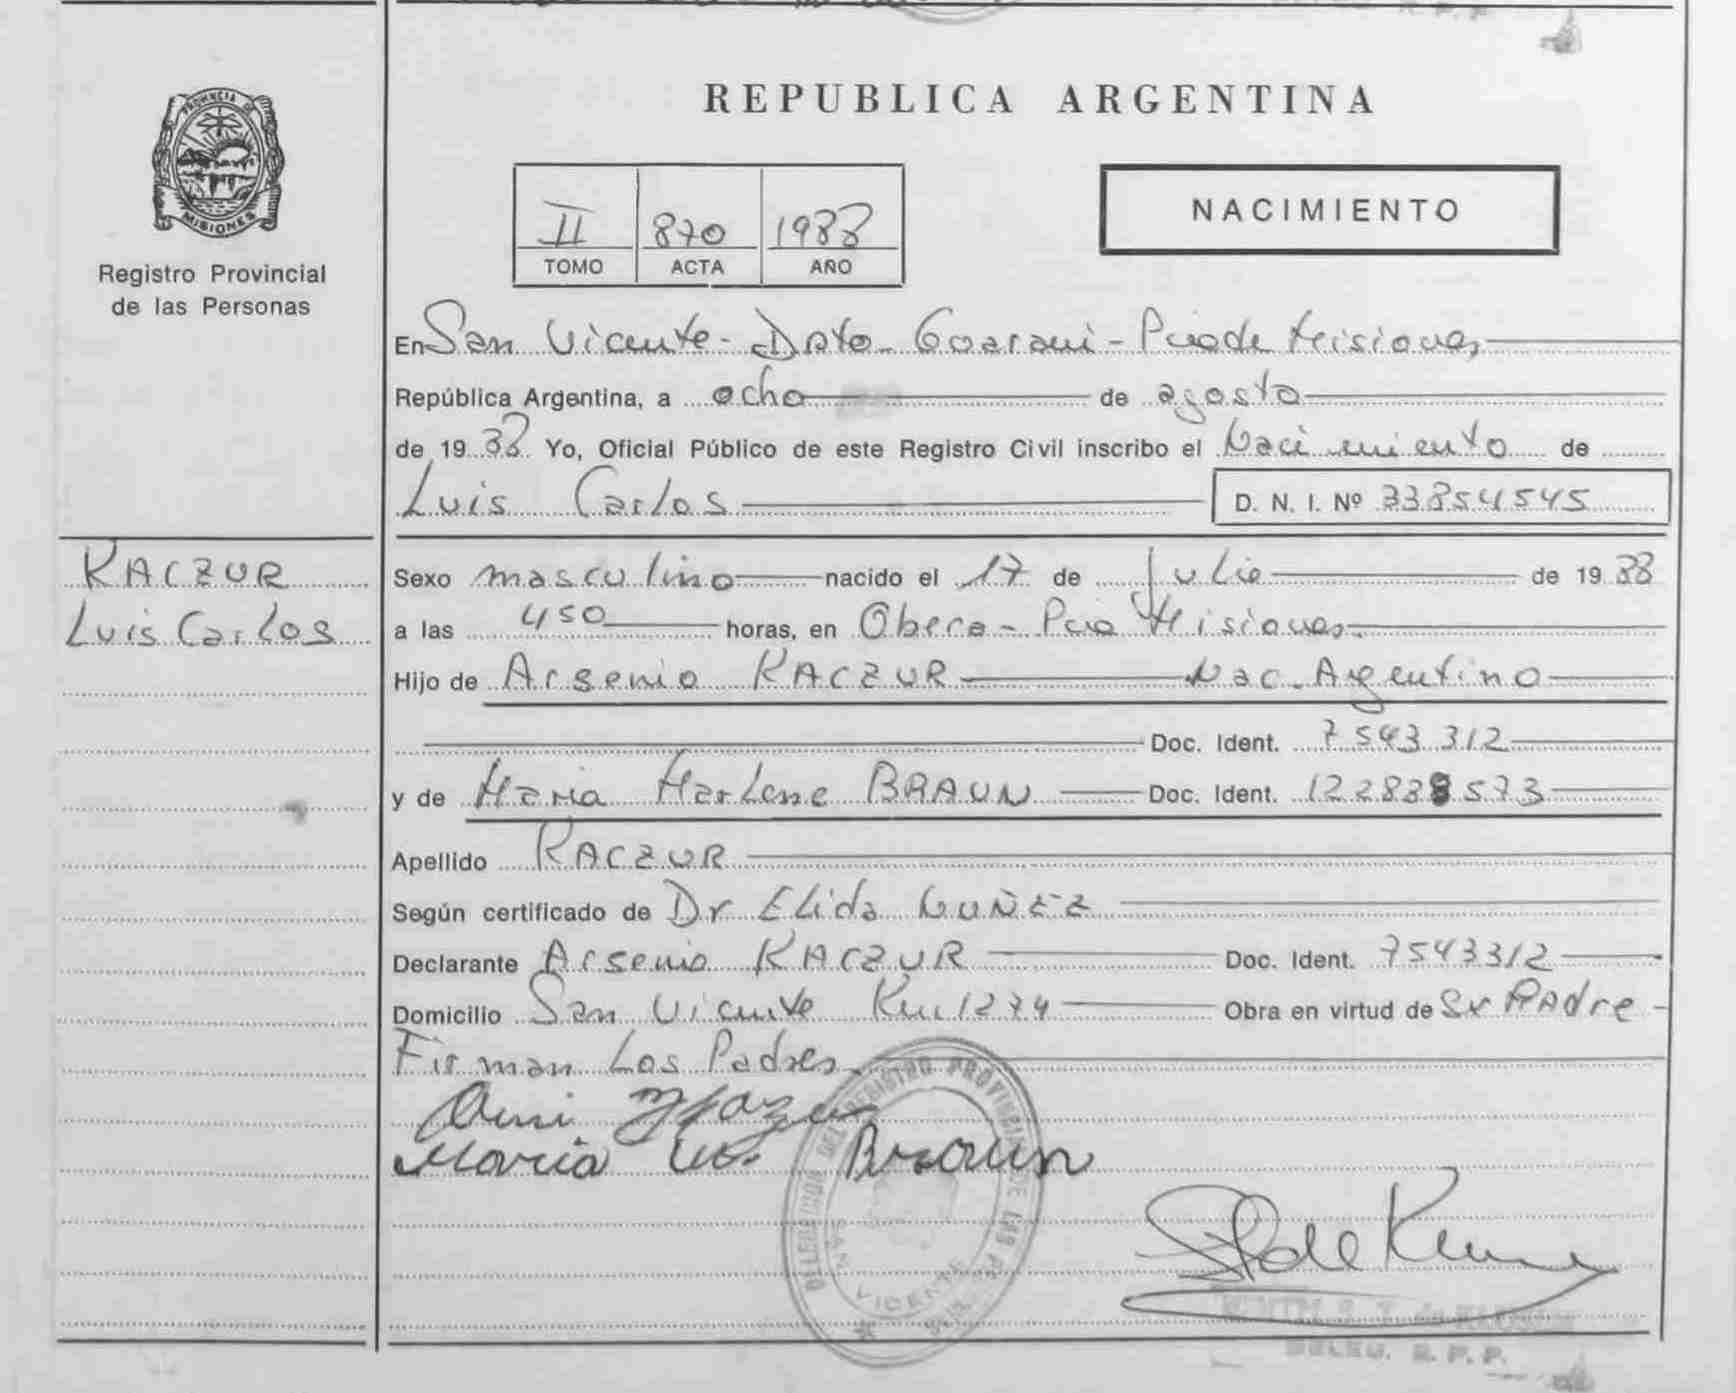 REPUBLICA ARGENTINA
PROVINCIA DE
MISIONES
Registro Provincial
de las Personas
II 870 1988
TOMO ACTA AÑO
NACIMIENTO
En San Vicente - Dpto - Guarani - Pcia de Misiones
República Argentina, a ocho de agosto
de 1988 Yo, Oficial Público de este Registro Civil inscribo el Nacimiento de
Luis Carlos D. N. I. Nº 33854545
KACZUR
Luis Carlos
Sexo masculino nacido el 17 de Julio de 1988
a las 450 horas, en Obera - Pcia Misiones.
Hijo de Arsenio KACZUR Nac. Argentino
Doc. Ident. 7543312
y de Maria Marlene BRAUN Doc. Ident. 12283573
Apellido KACZUR
Según certificado de Dr Elida NUÑEZ
Declarante Arsenio KACZUR Doc. Ident. 7543312
Domicilio San Vicente Km 1274 Obra en virtud de Su Padre -
Firman Los Padres.
Maria M. Braun
DELEGACION DEL REGISTRO PROVINCIAL DE LAS
SAN VICENTE
DELEG. R. P. P.